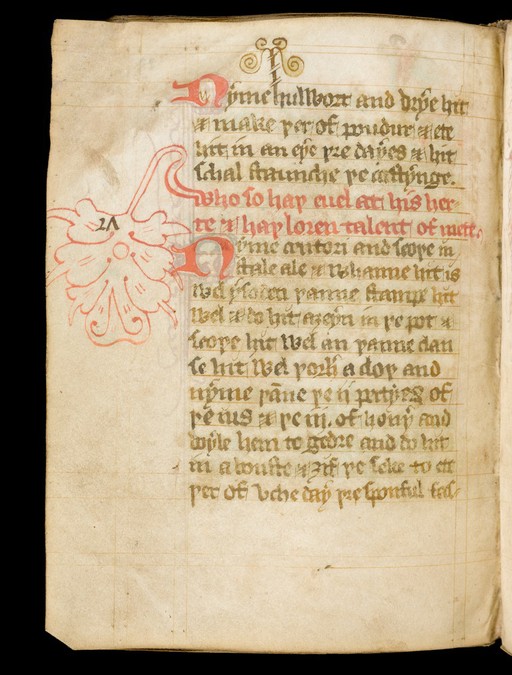 Nyme hulwort and drye hit
& make þer of poudur & ete
hit in an eye þre dayes & hit
schal staunche þe castynge.
Who so haþ euel at his her-
te & haþ loren talent of mete.
Nyme centori and seoþe in
stale ale & whanne hit is
wel ysoden þanne stampe hit
wel & do hit aȝeyn in þe pot &
seoþe hit wel an þanne clan
se hit wel þorȝ a cloþ and
nyme þãne þe ii partyes of
þe ius & þe iii. of hony and
boyle hem to gedre and do hit
in a bouste & ȝif þe seke to ete
þer of vche day þre sponful fas-